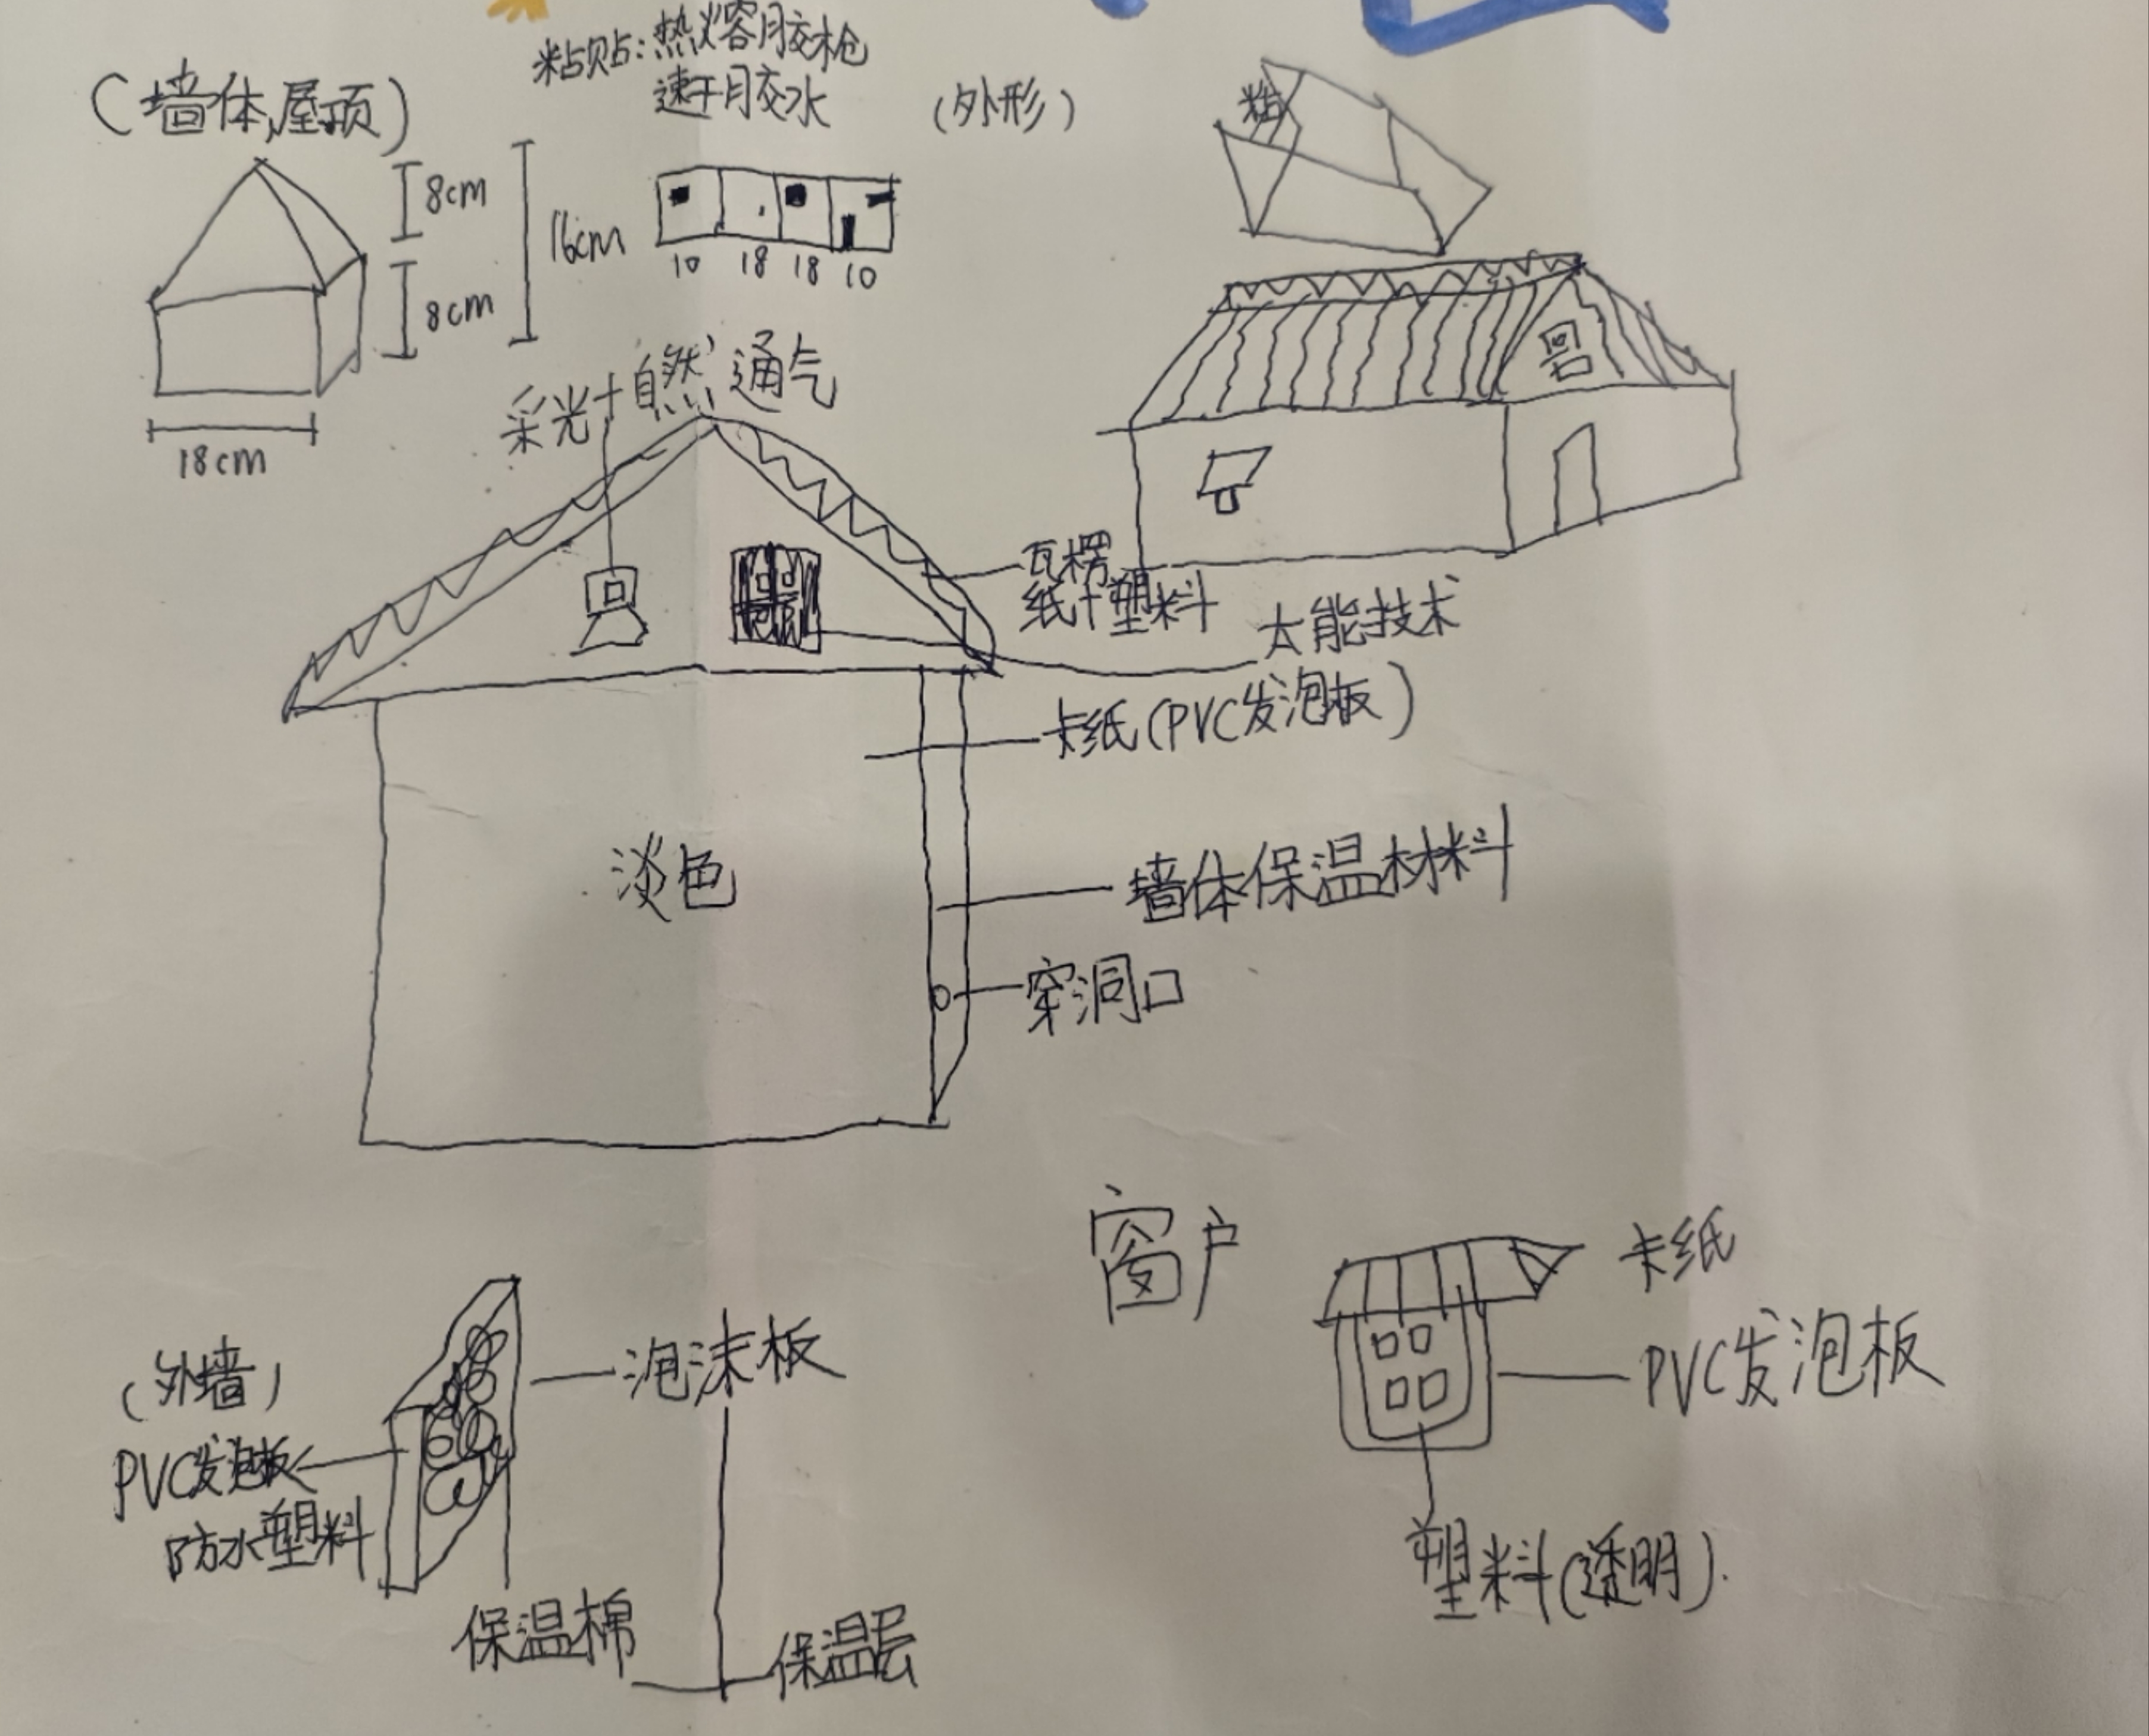 粘贴：热熔胶枪
速干胶水
（墙体，屋顶）
（外形）
8cm
8cm
16cm
18cm
10 18 18 10
采光+自然通气
瓦楞
纸+塑料
太能技术
卡纸（PVC发泡板）
淡色
墙体保温材料
穿洞口
窗户
卡纸
PVC发泡板
塑料（透明）.
（外墙）
PVC发泡板
防水塑料
泡沫板
保温棉
保温层